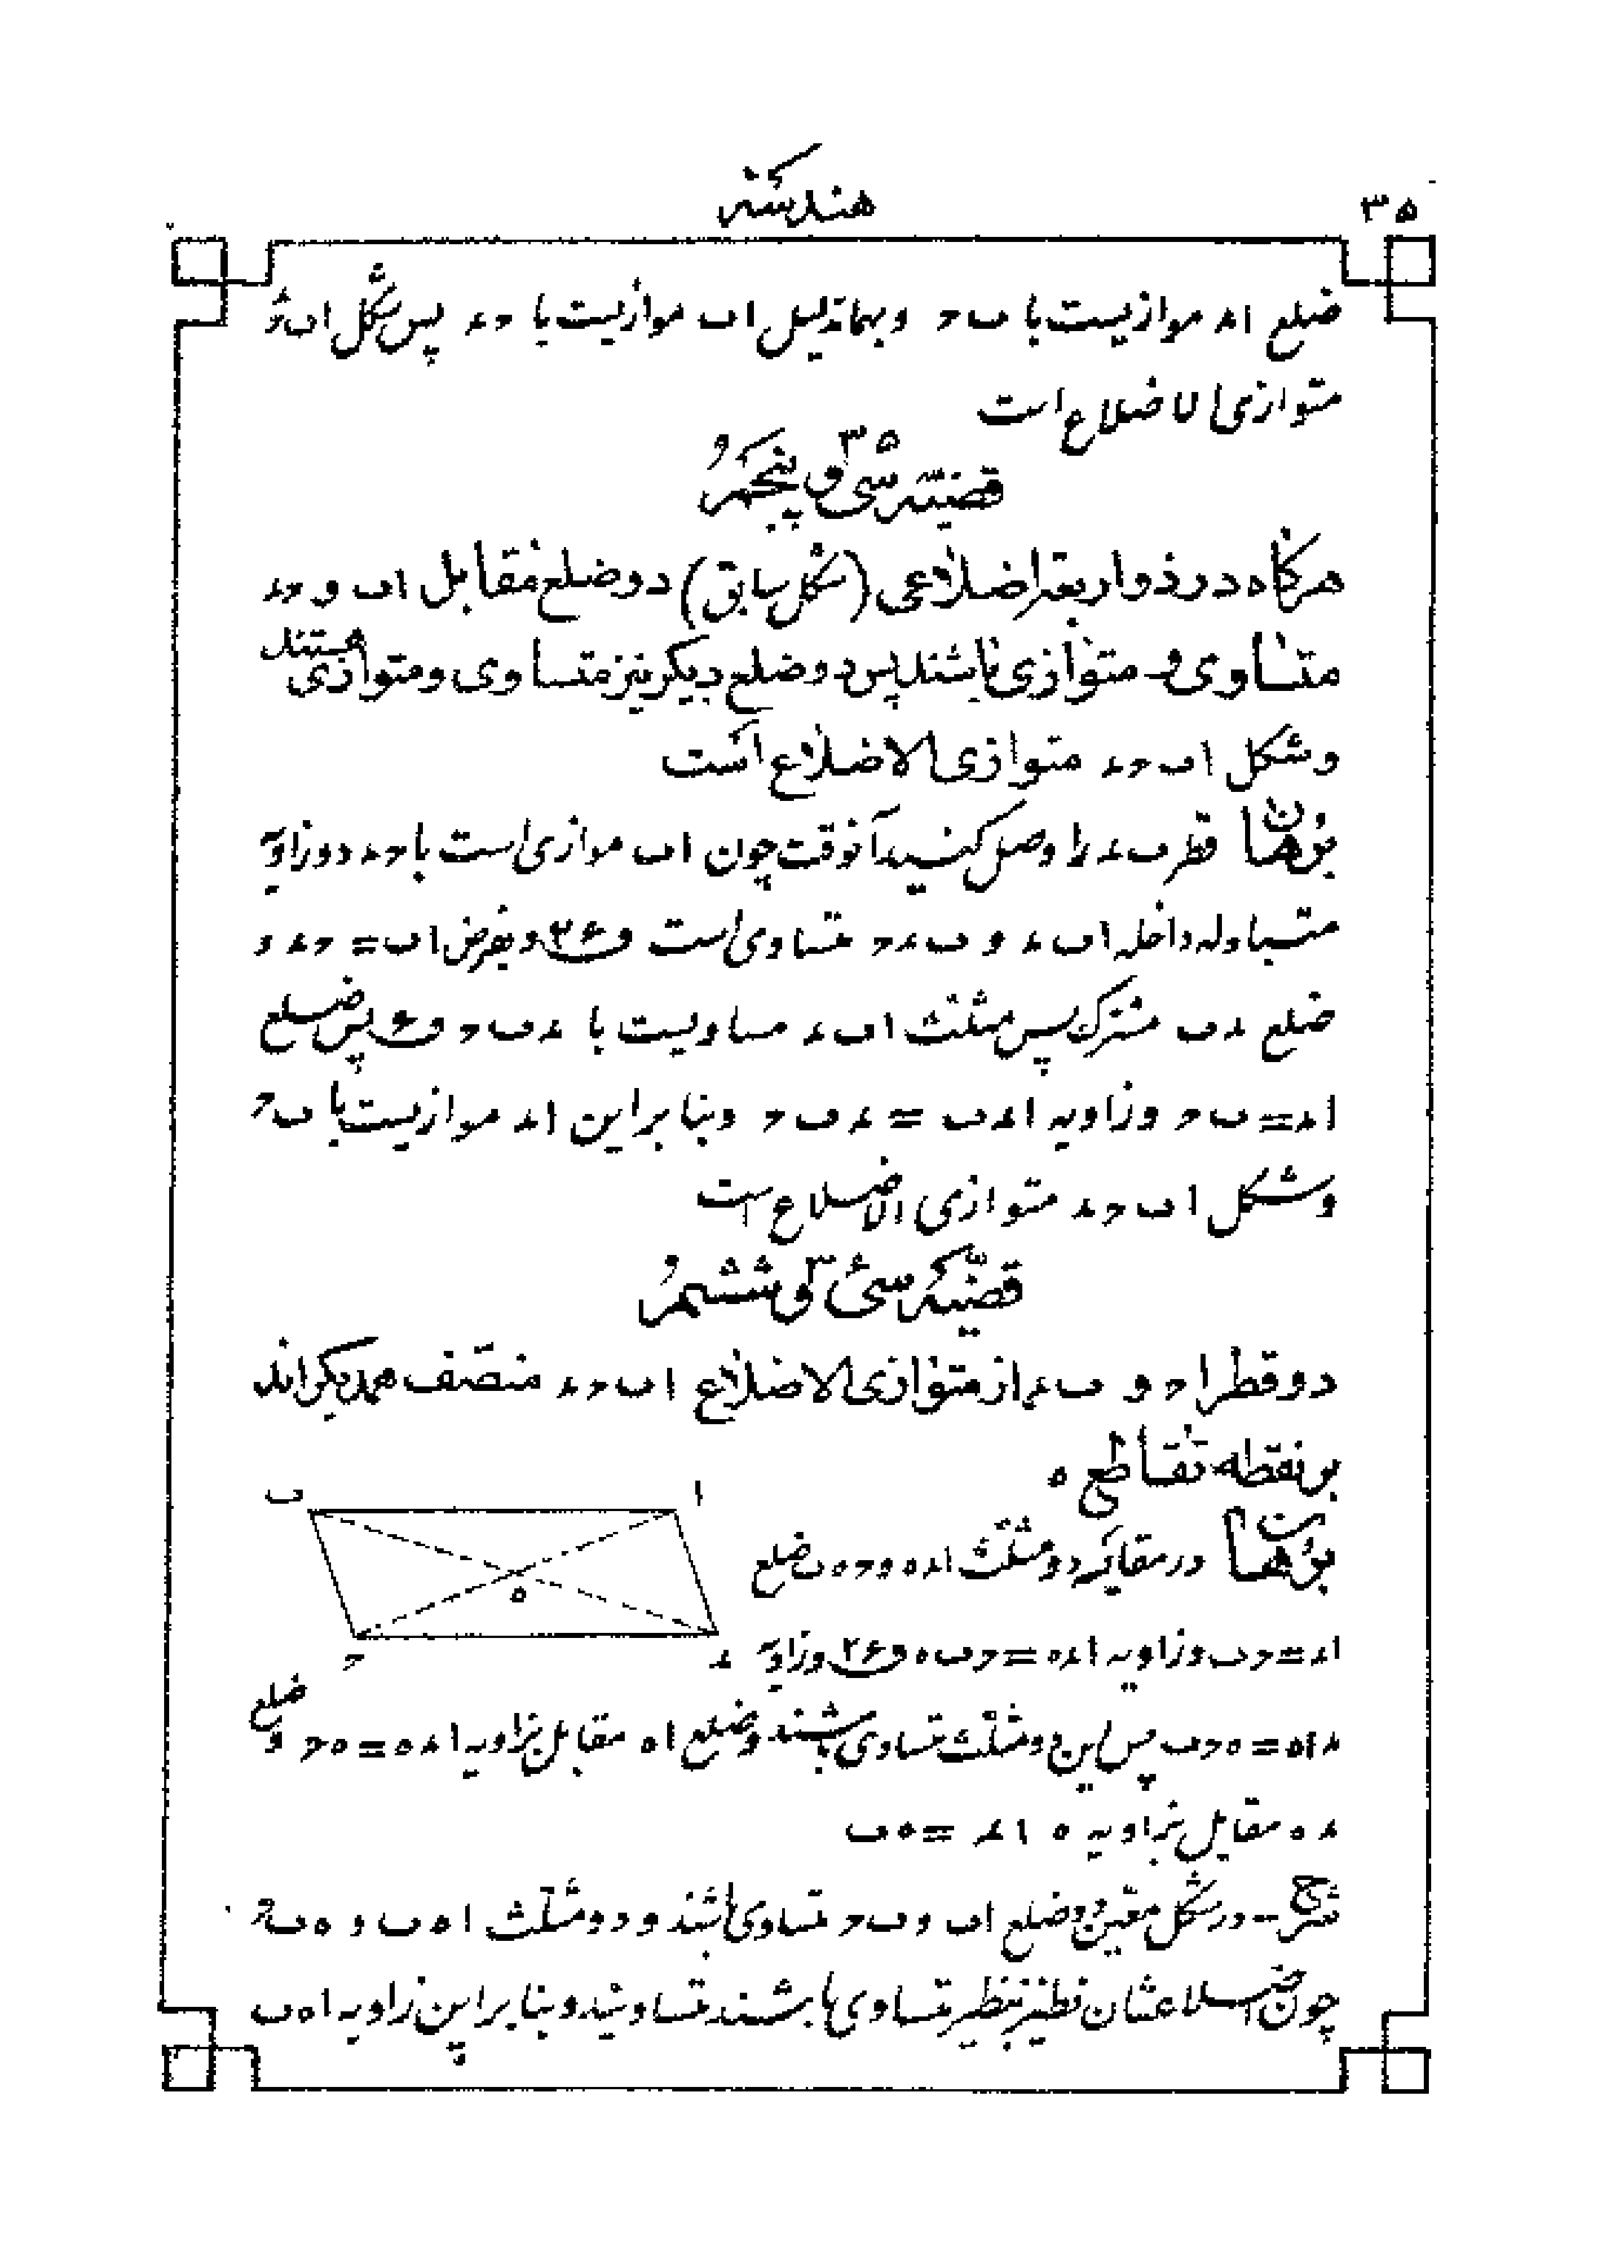 ۳۵
هندسه
ضلع اد موازیست با ب ح و بهمان دلیل اب موازیست با حد پس شکل اب حد
متوازی الاضلاع است
۳۵
قضیه سی و پنجم
هرگاه در ذواربعة اضلاعی (شکل سابق) دو ضلع مقابل اب و حد
متساوی و متوازی باشند پس دو ضلع دیگر نیز متساوی و متوازی هستند
و شکل اب حد متوازی الاضلاع است
برهان قطر ب د را وصل کنید آنوقت چون اب موازی است با حد دو زاویه
متبادله داخله اب د و ب د ح متساوی است و بفرض اب = حد و
ضلع د ب مشترک پس مثلث اب د مساویست با د ب ح پس ضلع
اد = ب ح و زاویه اد ب = د ب ح و بنا براین اد موازیست با ب ح
و شکل اب حد متوازی الاضلاع است
قضیه سی و ششم
دو قطر اح و ب د از متوازی الاضلاع اب حد منصف همدیگراند
بر نقطه تقاطع ه
ب ا
برهان در مقایسه دو مثلث اده و ح ه ب ضلع
ه
اد = ح ب و زاویه اده = ح ب ه و زاویه
ح د
داه = ه ح ب پس این دو مثلث متساوی باشند و ضلع اه مقابل بزاویه اده = ه ح و ضلع
ده مقابل بزاویه ه اد = ه ب
شرح - در شکل معین دو ضلع اب و ب ح متساوی باشند و دو مثلث اه ب و ه ب ح
چون اضلاعشان نظیر بنظیر متساوی باشند متساویند و بنا براین زاویه اه ب